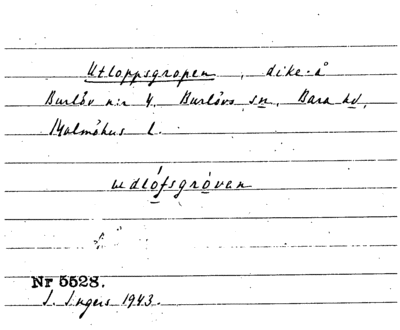 Utloppsgropen, dike-å
Burlöv n:r 4. Burlövs sn, Bara hd,
Malmöhus l.
udlófsgróven
Nr 5528.
I. Ingers 1943.